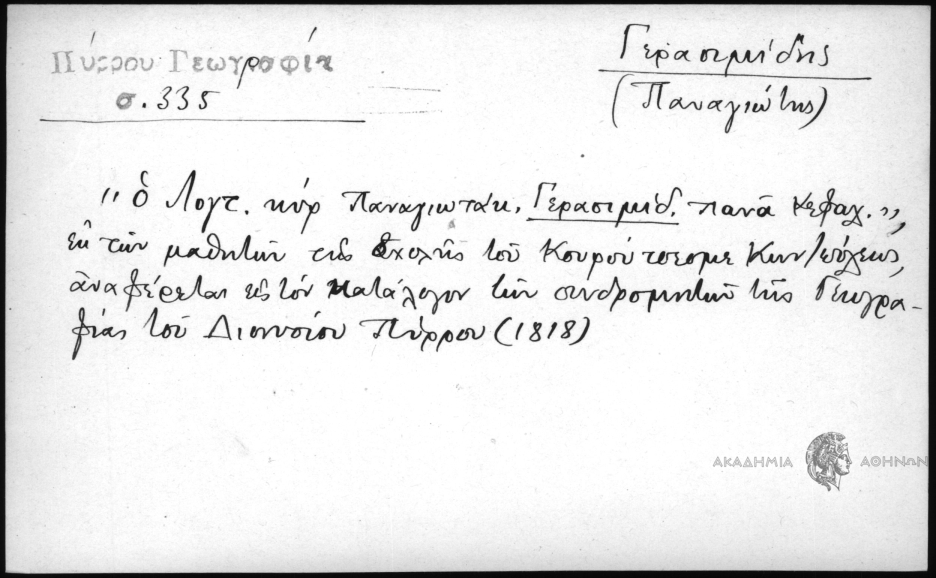 Πύρρου Γεωγραφία
σ. 335
Γερασιμίδης
(Παναγιώτης)
"ὁ Λογτ. κύρ Παναγιωτάκ. Γερασιμίδ. παπᾶ Κεφαλ.",
ἐκ τῶν μαθητῶν τῆς Σχολῆς τοῦ Κουρούτσεσμε Κων/πόλεως,
ἀναφέρεται εἰς τὸν κατάλογον τῶν συνδρομητῶν τῆς Γεωγρα-
φίας τοῦ Διονυσίου Πύρρου (1818)
ΑΚΑΔΗΜΙΑ ΑΘΗΝΩΝ